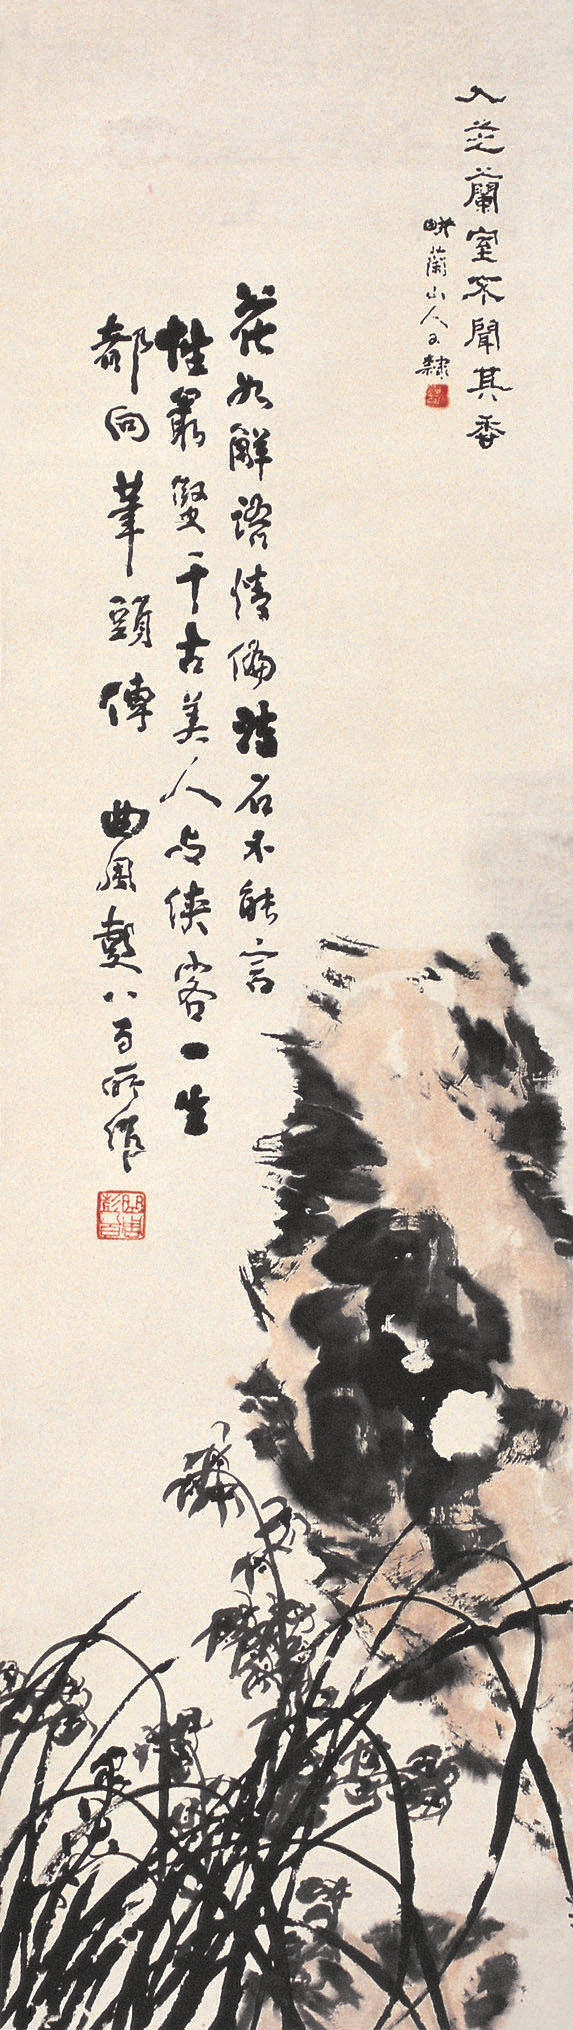 入芝蘭室不聞其香
畊蘭山人又隸
花如解語情偏 石不能言
性最堅千古美人與俠客一生
都向筆頭傳 曲 八百所作